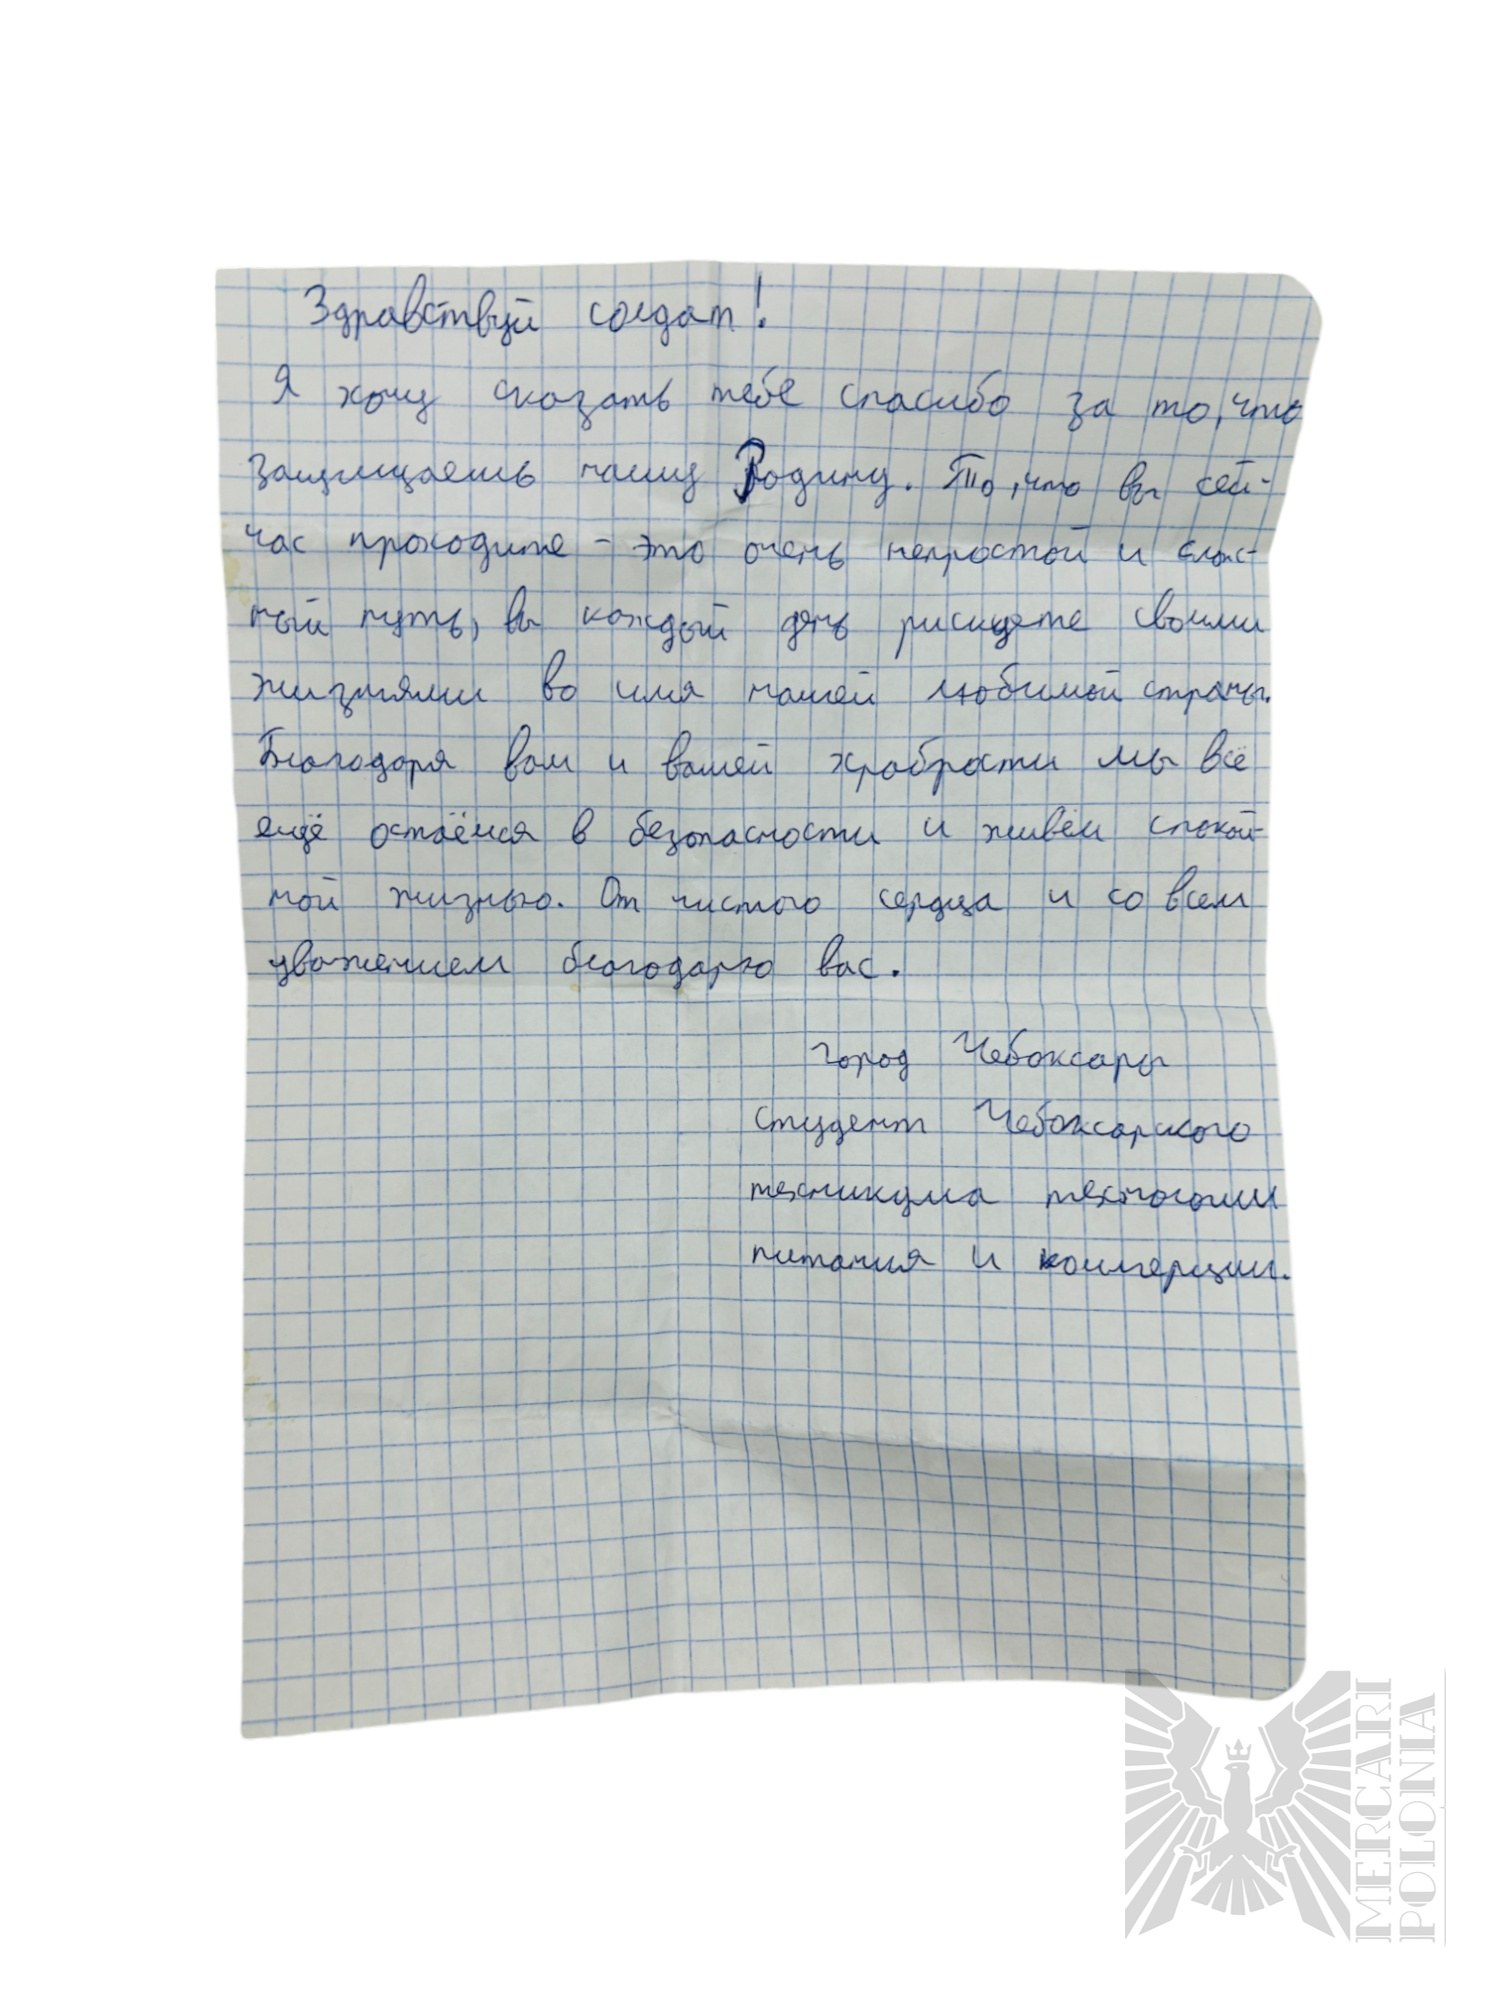 Здравствуй солдат!
Я хочу сказать тебе спасибо за то, что
защищаешь нашу Родину. То, что вы сей-
час проходите - это очень непростой и слож-
ный путь, вы каждый день рискуете своими
жизнями во имя нашей любимой страны.
Благодаря вам и вашей храбрости мы всё
ещё остаёмся в безопасности и живём спокой-
ной жизнью. От чистого сердца и со всем
уважением благодарю вас.
Город Чебоксары
Студент Чебоксарского
техникума технологии
питания и коммерции.
MERCARI
POLONIA